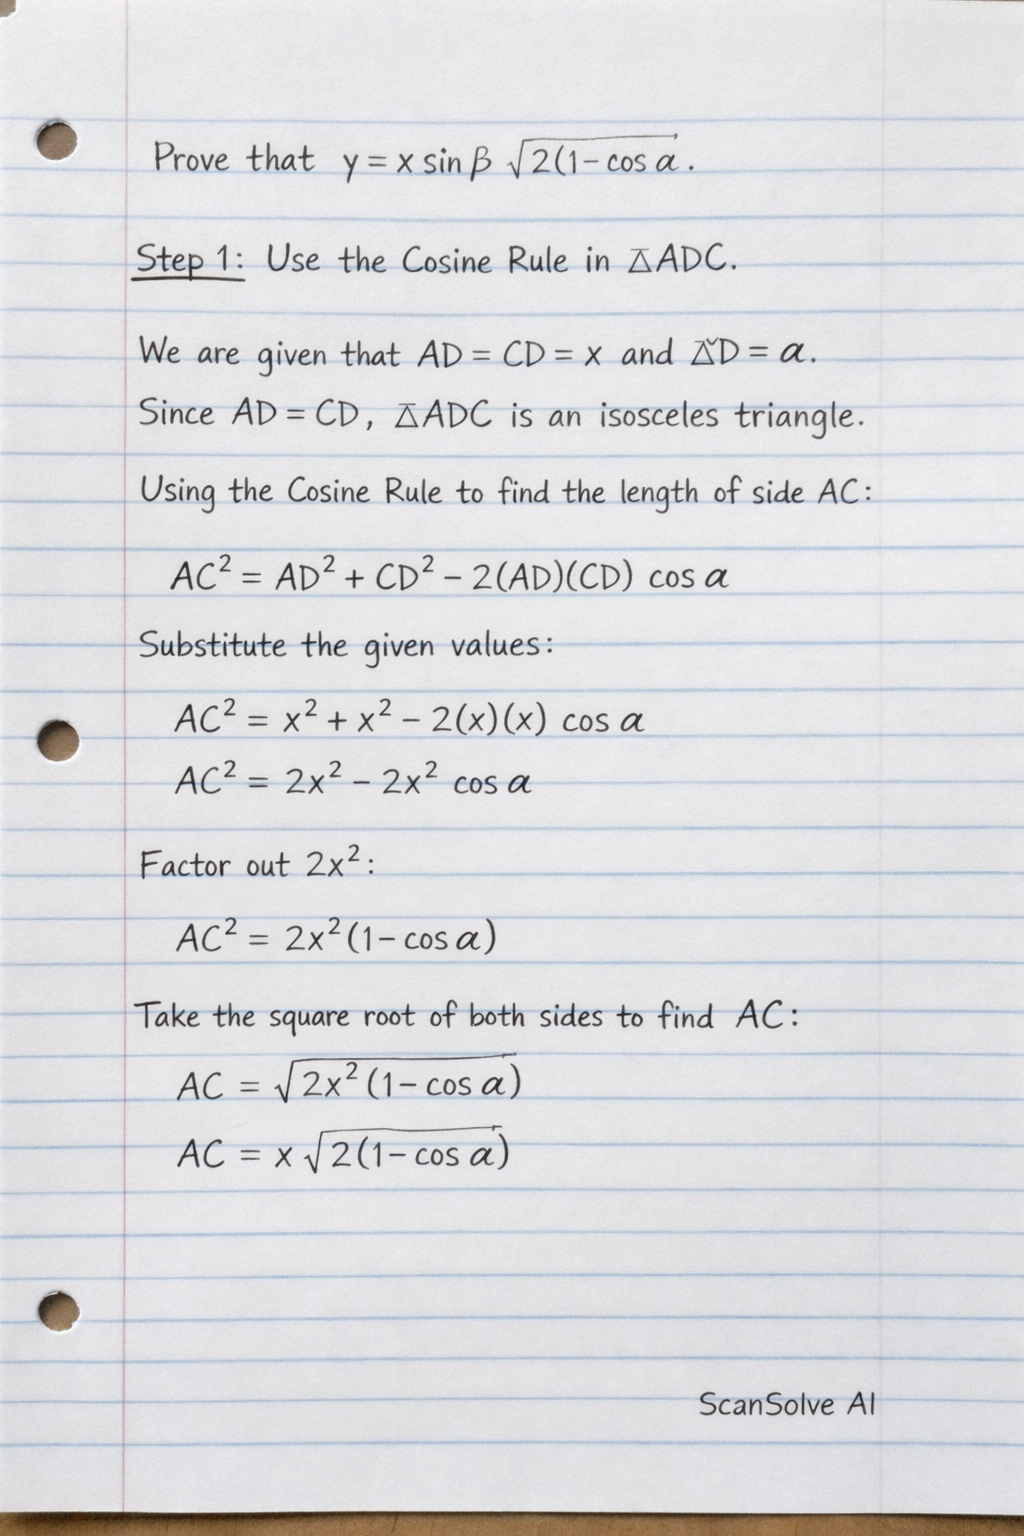 Prove that y = x sin β √2(1 - cos α.
Step 1: Use the Cosine Rule in △ADC.
We are given that AD = CD = x and ΔD = α.
Since AD = CD, △ADC is an isosceles triangle.
Using the Cosine Rule to find the length of side AC:
AC² = AD² + CD² - 2(AD)(CD) cos α
Substitute the given values:
AC² = x² + x² - 2(x)(x) cos α
AC² = 2x² - 2x² cos α
Factor out 2x²:
AC² = 2x²(1 - cos α)
Take the square root of both sides to find AC:
AC = √2x²(1 - cos α)
AC = x √2(1 - cos α)
ScanSolve AI